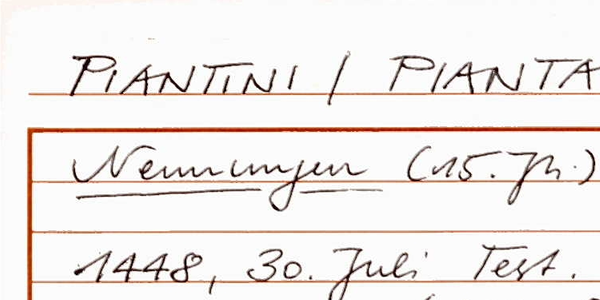 PIANTINI / PIANTA
Nennungen (15. Jh.)
1448, 30. Juli Test.